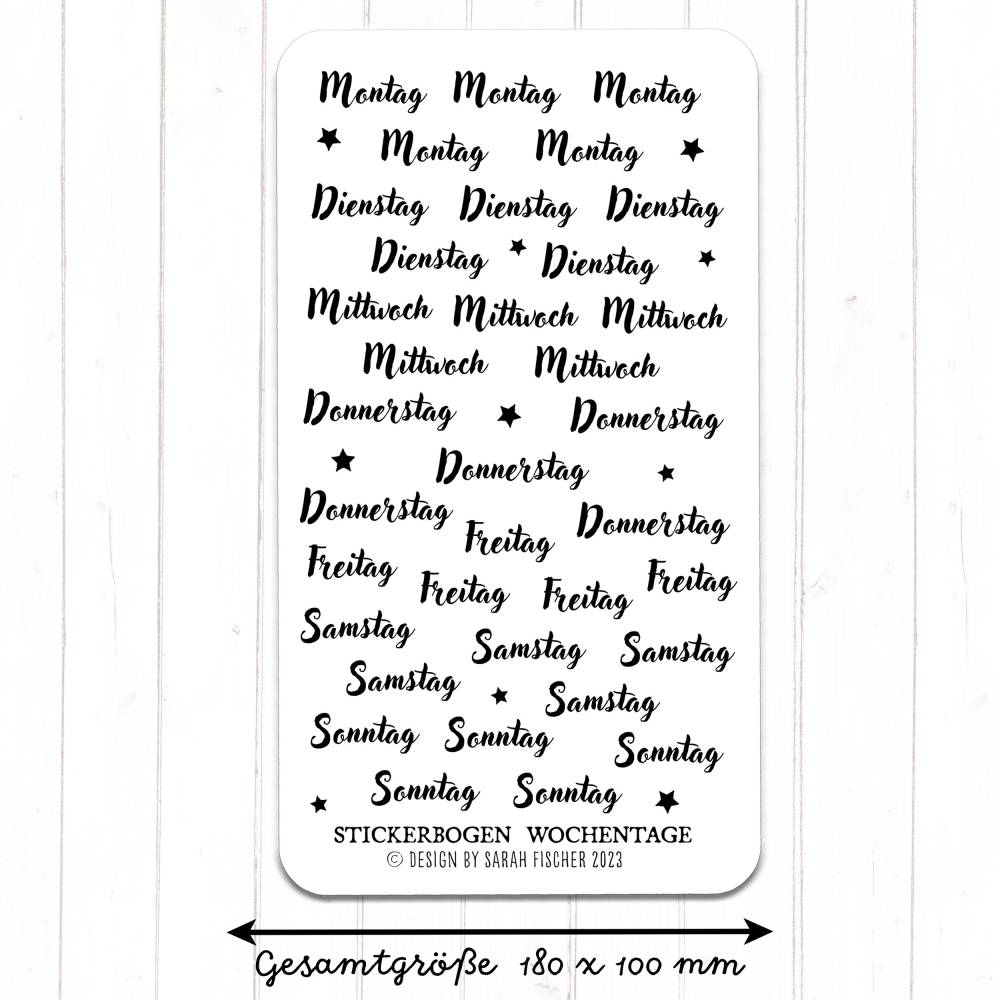 Montag Montag Montag
Montag Montag
Dienstag Dienstag Dienstag
Dienstag Dienstag
Mittwoch Mittwoch Mittwoch
Mittwoch Mittwoch
Donnerstag Donnerstag
Donnerstag
Donnerstag Donnerstag
Freitag
Freitag Freitag
Freitag Freitag
Samstag Samstag Samstag
Samstag Samstag
Sonntag Sonntag Sonntag
Sonntag Sonntag
STICKERBOGEN WOCHENTAGE
© DESIGN BY SARAH FISCHER 2023
Gesamtgröße 180 x 100 mm